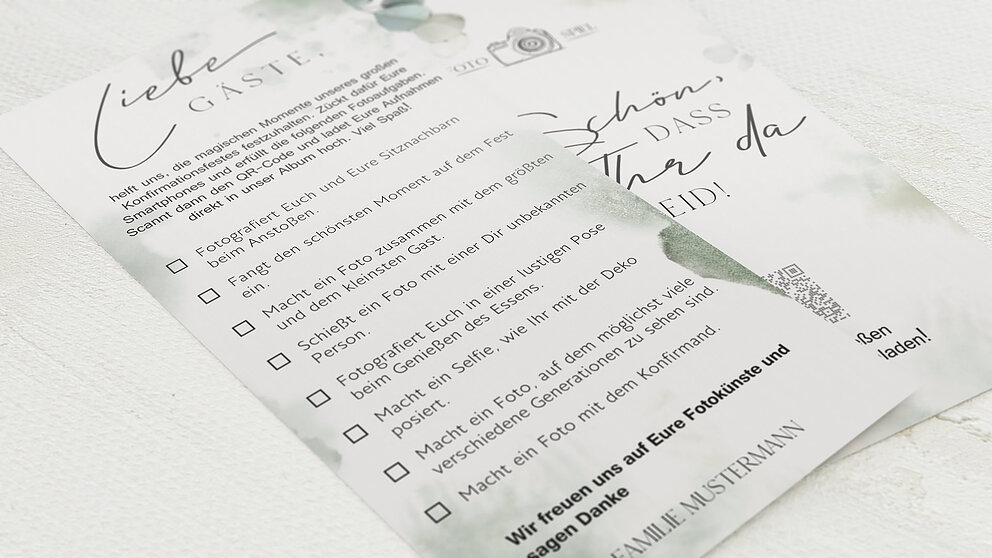 Liebe
GÄSTE,
helft uns, die magischen Momente unseres großen
Konfirmationsfestes festzuhalten. Zückt dafür Eure
Smartphones und erfüllt die folgenden Fotoaufgaben.
Scannt dann den QR-Code und ladet Eure Aufnahmen
direkt in unser Album hoch. Viel Spaß!
Fotografiert Euch und Eure Sitznachbarn
beim Anstoßen.
Fangt den schönsten Moment auf dem Fest
ein.
Macht ein Foto zusammen mit dem größten
und dem kleinsten Gast.
Schießt ein Foto mit einer Dir unbekannten
Person.
Fotografiert Euch in einer lustigen Pose
beim Genießen des Essens.
Macht ein Selfie, wie Ihr mit der Deko
posiert.
Macht ein Foto, auf dem möglichst viele
verschiedene Generationen zu sehen sind.
Macht ein Foto mit dem Konfirmand.
Wir freuen uns auf Eure Fotokünste und
sagen Danke
FAMILIE MUSTERMANN
FOTO SPIEL
Schön,
DASS
Ihr da
EID!
ßen
laden!